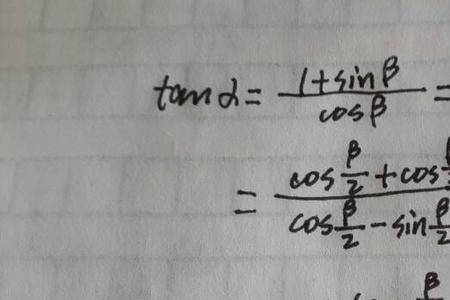 tan α = (1 + sin β) / (cos β) =
= (cos β/2 + cos) / (cos β/2 − sin β/2)
β